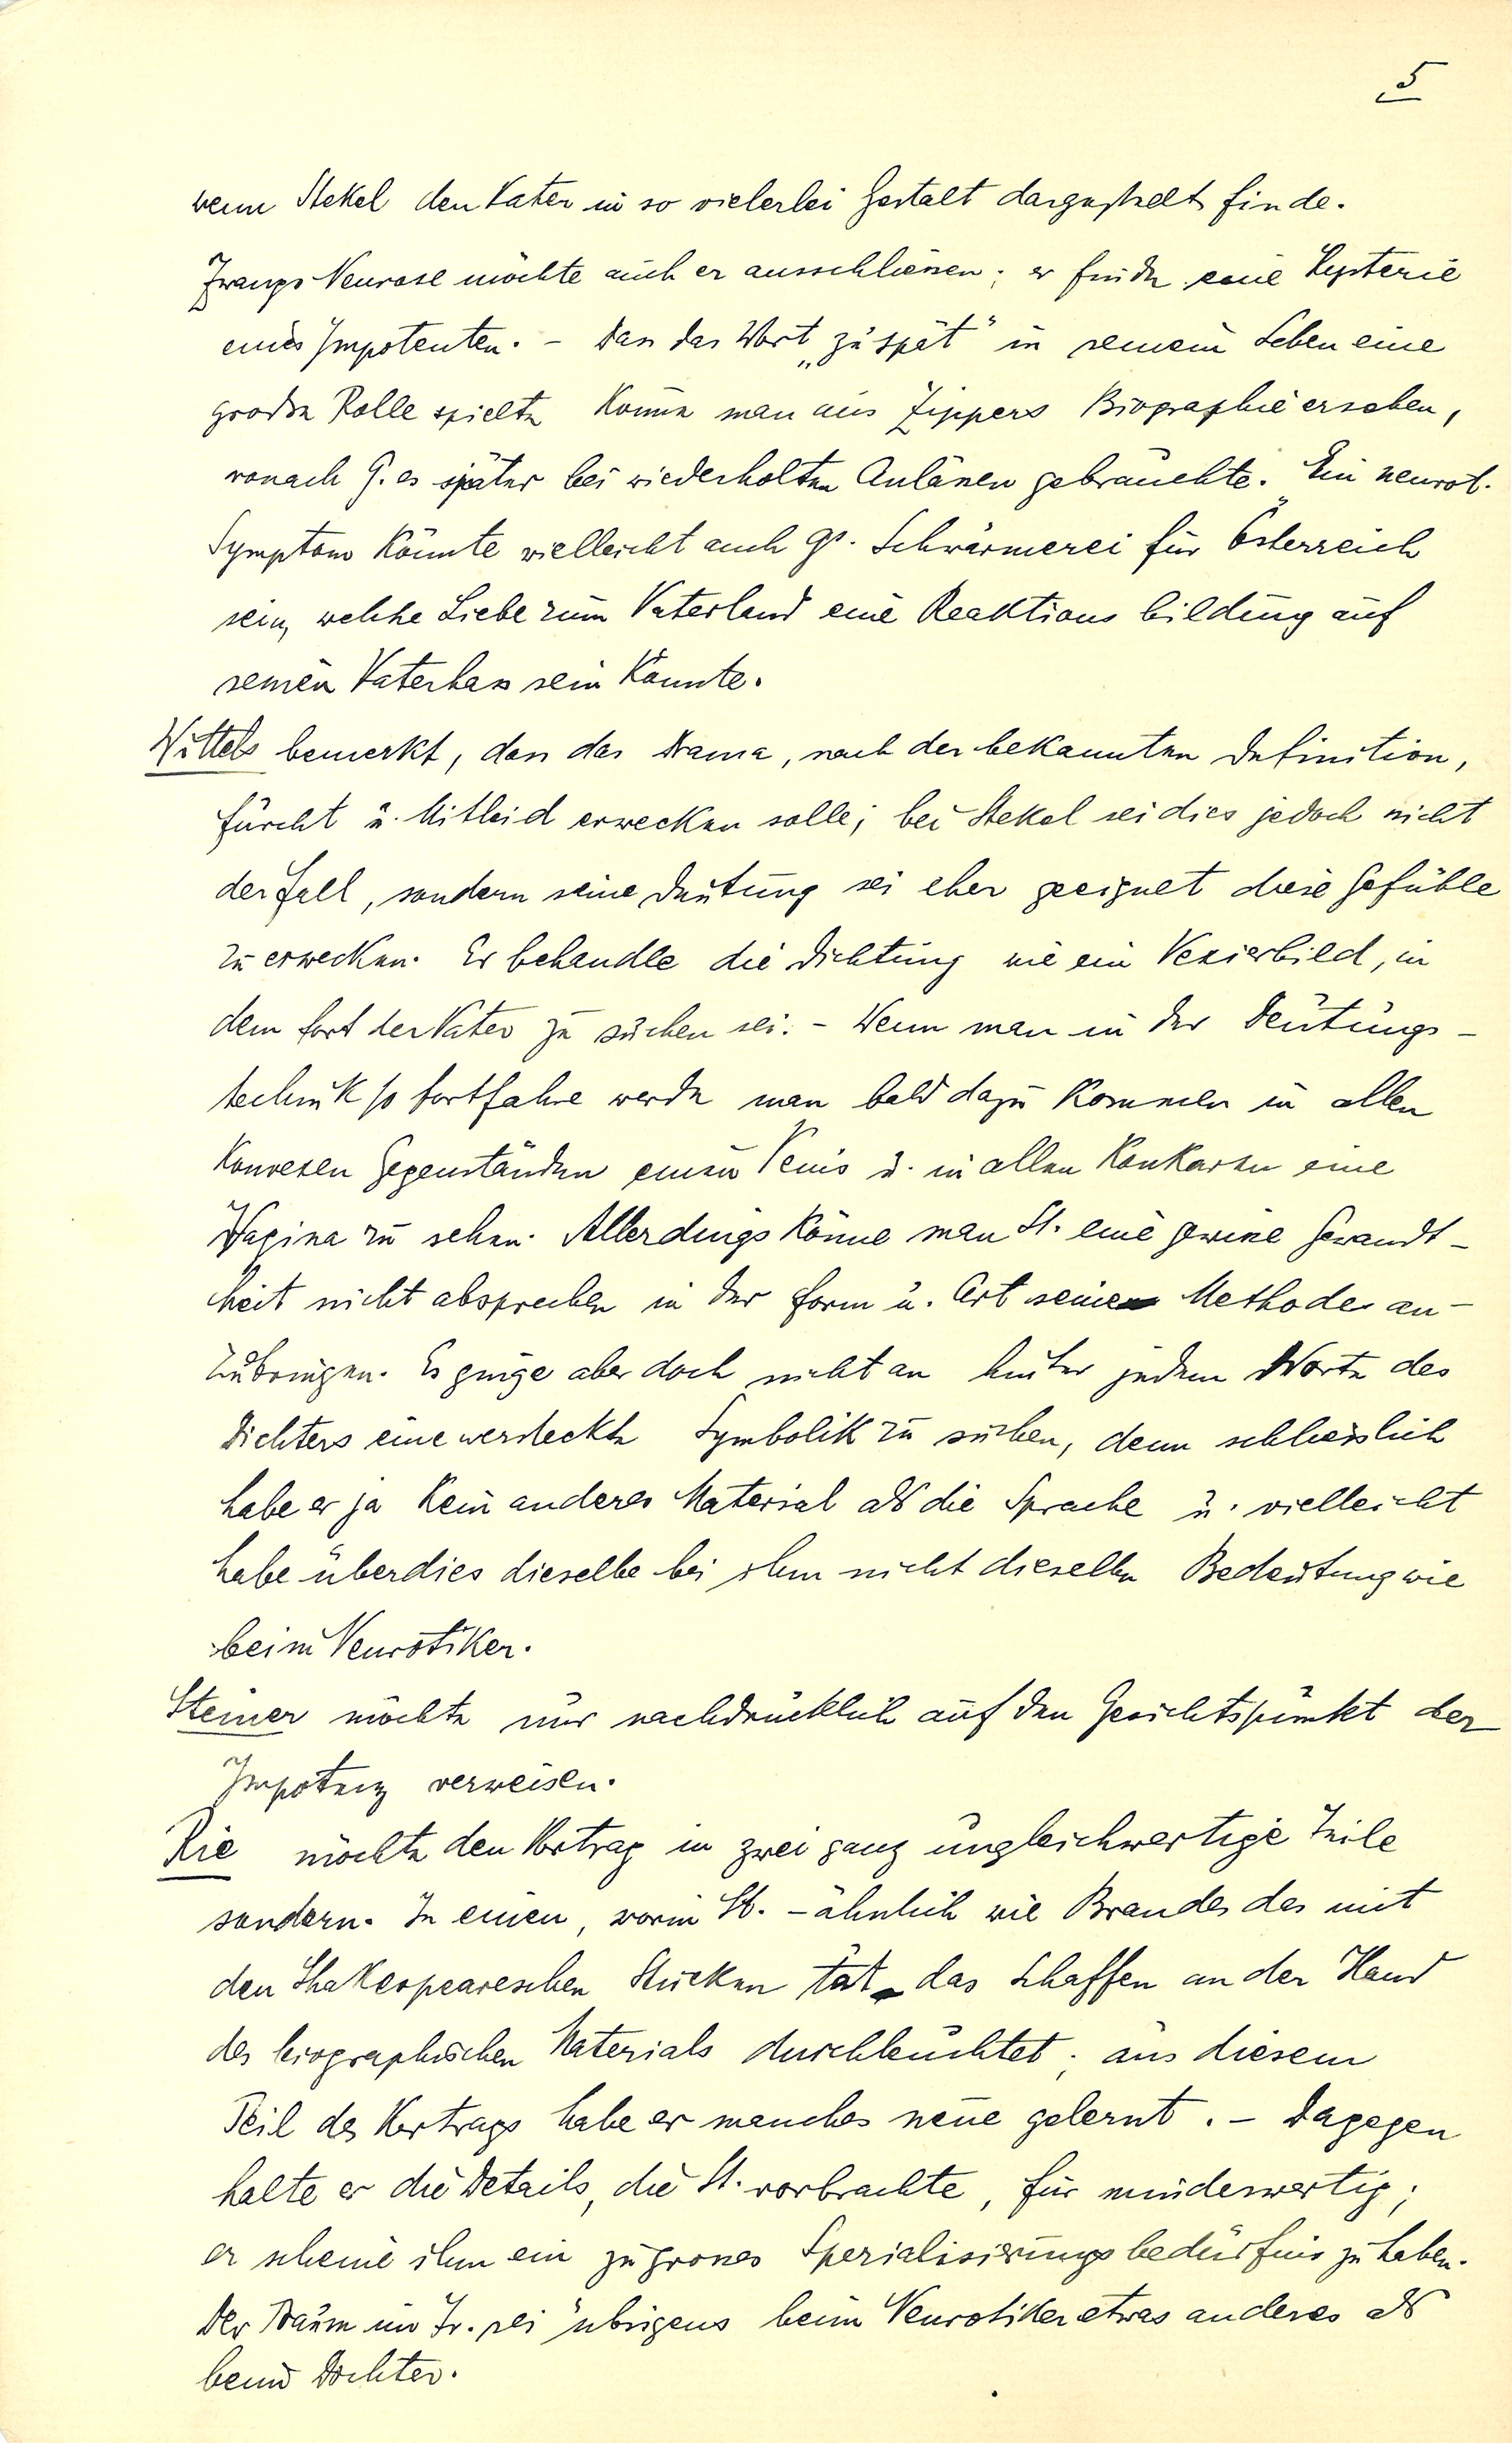 5
wenn Stekel den Vater in so vielerlei Gestalt dargestellt finde.
Zwangs Neurose möchte auch er ausschliessen; er finde eine Hysterie
eines Impotenten. – Dass das Wort „zu spät" in seinem Leben eine
grosse Rolle spielte könne man aus Zippers Biographie ersehen,
wonach G. es später bei wiederholten Anlässen gebrauchte. Ein neurot.
Symptom könnte vielleicht auch Gs. Schwärmerei für Österreich
sein, welche Liebe zum Vaterland eine Reaktionsbildung auf
seinen Vaterhass sein könnte.
Wittels bemerkt, dass das Drama, nach der bekannten Definition,
Furcht u. Mitleid erwecken solle; bei Stekel sei dies jedoch nicht
der Fall, sondern seine Deutung sei eher geeignet diese Gefühle
zu erwecken. Er behandle die Dichtung wie ein Vexierbild, in
dem fort der Vater zu suchen sei. – Wenn man in der Deutungs-
technik so fortfahre werde man bald dazu kommen in allen
konvexen Gegenständen einen Penis u. in allen Konkaven eine
Vagina zu sehen. Allerdings könne man St. eine gewisse Gewandt-
heit nicht absprechen in der Form u. Art seine Methode an-
zubringen. Es ginge aber doch nicht an hinter jedem Worte des
Dichters eine versteckte Symbolik zu suchen, denn schliesslich
habe er ja kein anderes Material als die Sprache u. vielleicht
habe überdies dieselbe bei ihm nicht dieselbe Bedeutung wie
beim Neurotiker.
Steiner möchte nur nachdrücklich auf den Gesichtspunkt der
Impotenz verweisen.
Rie möchte den Vortrag in zwei ganz ungleichwertige Teile
sondern. In einen, worin St. – ähnlich wie Brandes das mit
den Shakespeareschen Stücken tat – das Schaffen an der Hand
des biographischen Materials durchleuchtet; aus diesem
Teil des Vortrags habe er manches neue gelernt. – Dagegen
halte er die Details, die St. vorbrachte, für minderwertig;
er scheine ihm ein zu grosses Spezialisierungsbedürfnis zu haben.
Der Traum im Tr. sei übrigens beim Neurotiker etwas anderes als
beim Dichter.